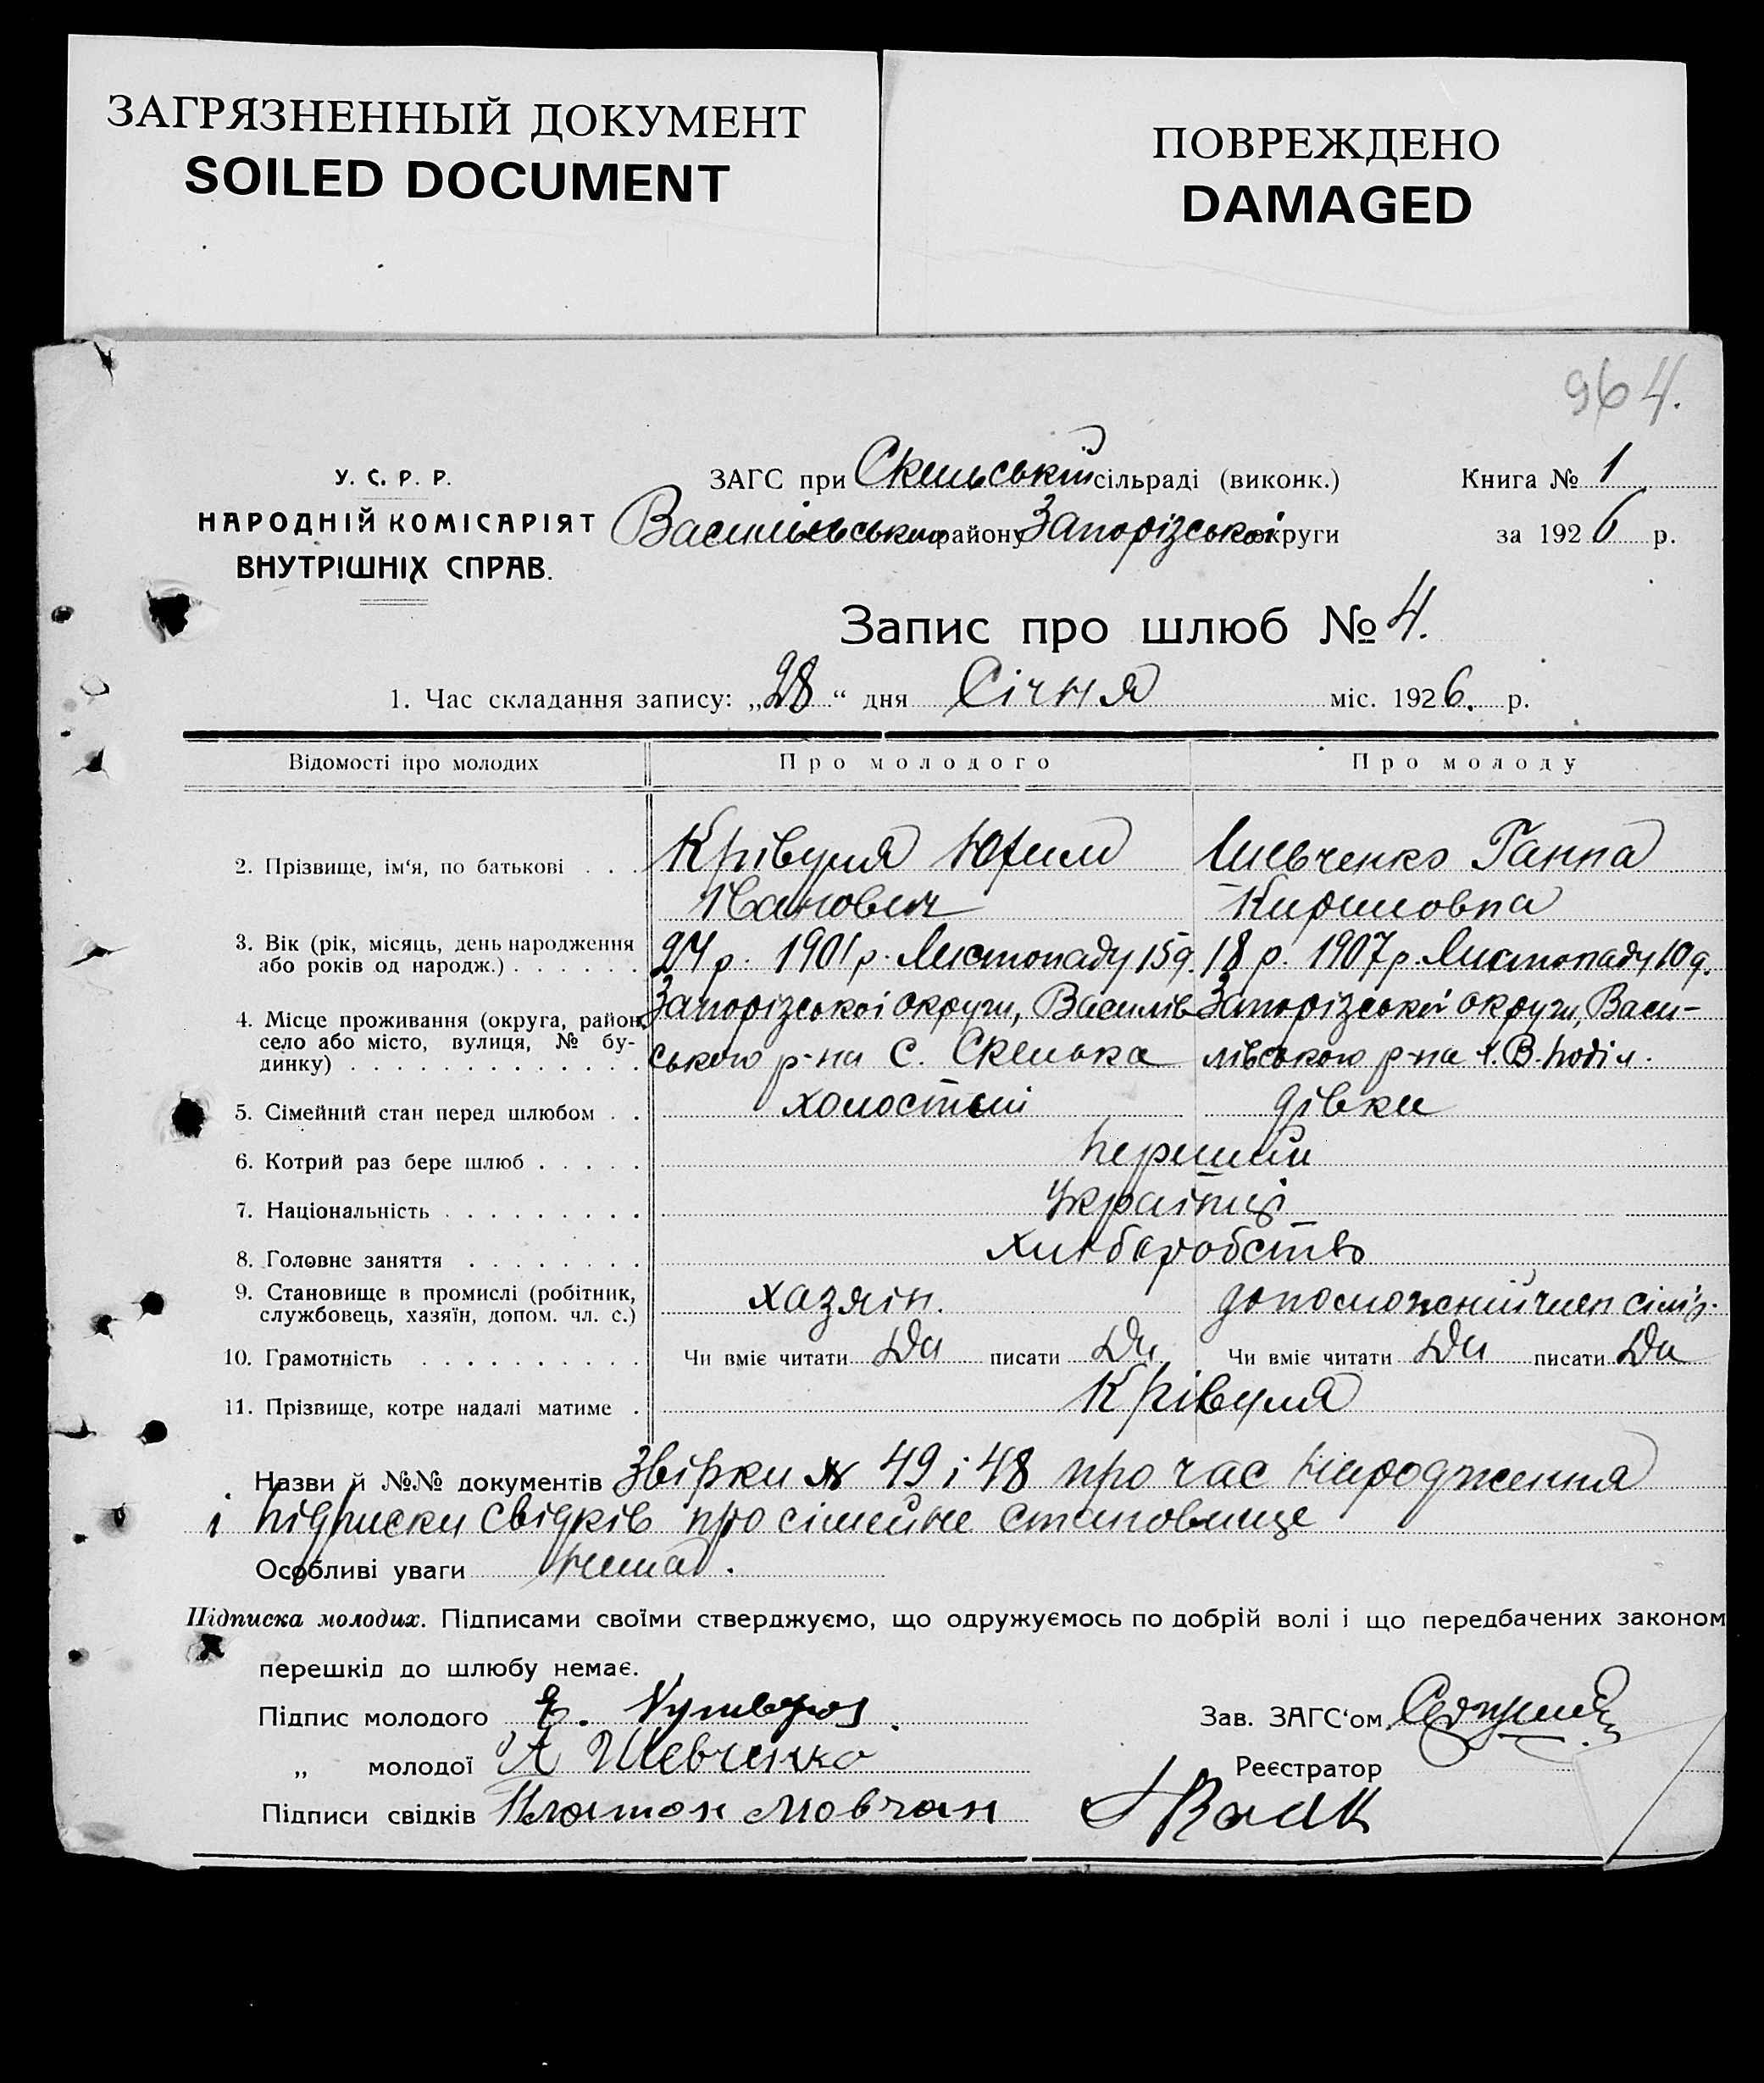 ЗАГРЯЗНЕННЫЙ ДОКУМЕНТ
SOILED DOCUMENT
ПОВРЕЖДЕНО
DAMAGED
964.
У. С. Р. Р.
НАРОДНІЙ КОМІСАРІЯТ
ВНУТРІШНІХ СПРАВ.
ЗАГС при Скельській сільраді (виконк.)
Василівського району Запорізської округи
Книга № 1
за 1926 р.
Запис про шлюб № 4.
1. Час складання запису: „28“ дня Січня міс. 1926. р.
Відомості про молодих Про молодого Про молоду
2. Прізвище, ім‘я, по батькові . . . Крівуля Юхим Шевченко Ганна
Іванович Кириловна
3. Вік (рік, місяць, день народження 24 р. 1901 р. Листопаду 15 д. 18 р. 1907 р. Листопаду 10 д.
або років од народж.) . . . . . .
4. Місце проживання (округа, район, Запорізської округи, Василів- Запорізської округи, Васи-
село або місто, вулиця, № бу-
динку) . . . . . . . . . . . . . ського р-на с. Скелька лівського р-на
5. Сімейний стан перед шлюбом . . холостий дівка
6. Котрий раз бере шлюб . . . . . Перший
7. Національність . . . . . . . . . Українці
8. Головне заняття . . . . . . . . хліборобство
9. Становище в промислі (робітник, хазяін. допоможний член сімї.
службовець, хазяїн, допом. чл. с.)
10. Грамотність . . . . . . . . . . Чи вміє читати Да писати Да Чи вміє читати Да писати Да
11. Прізвище, котре надалі матиме . Крівуля
Назви й №№ документів Звірки № 49 і 48 про час народження
і підписки свідків про сімейне становище
Особливі уваги Нема.
Підписка молодих. Підписами своїми стверджуємо, що одружуємось по добрій волі і що передбачених законом
перешкід до шлюбу немає.
Підпис молодого
Зав. ЗАГС‘ом
„ молодої А Шевченко
Реєстратор
Підписи свідків Платон Мовчан